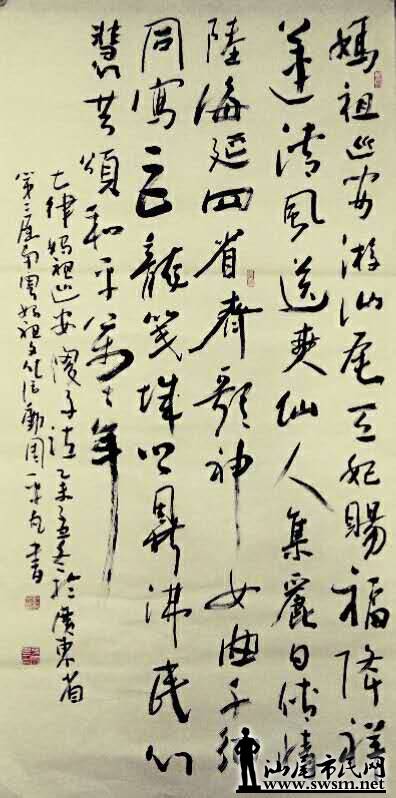 媽祖巡安游汕尾天妃賜福降祥
蓮清風送爽仙人集麗日傾情
陸海延四省齊歌神女曲千
同寫龍箋城心鼎沸民心
慧共頌和平萬年
七律媽祖巡安乙未孟冬於廣東省
第三届南粵媽祖文化活動周平凡書
汕尾市民网
www.swsm.net